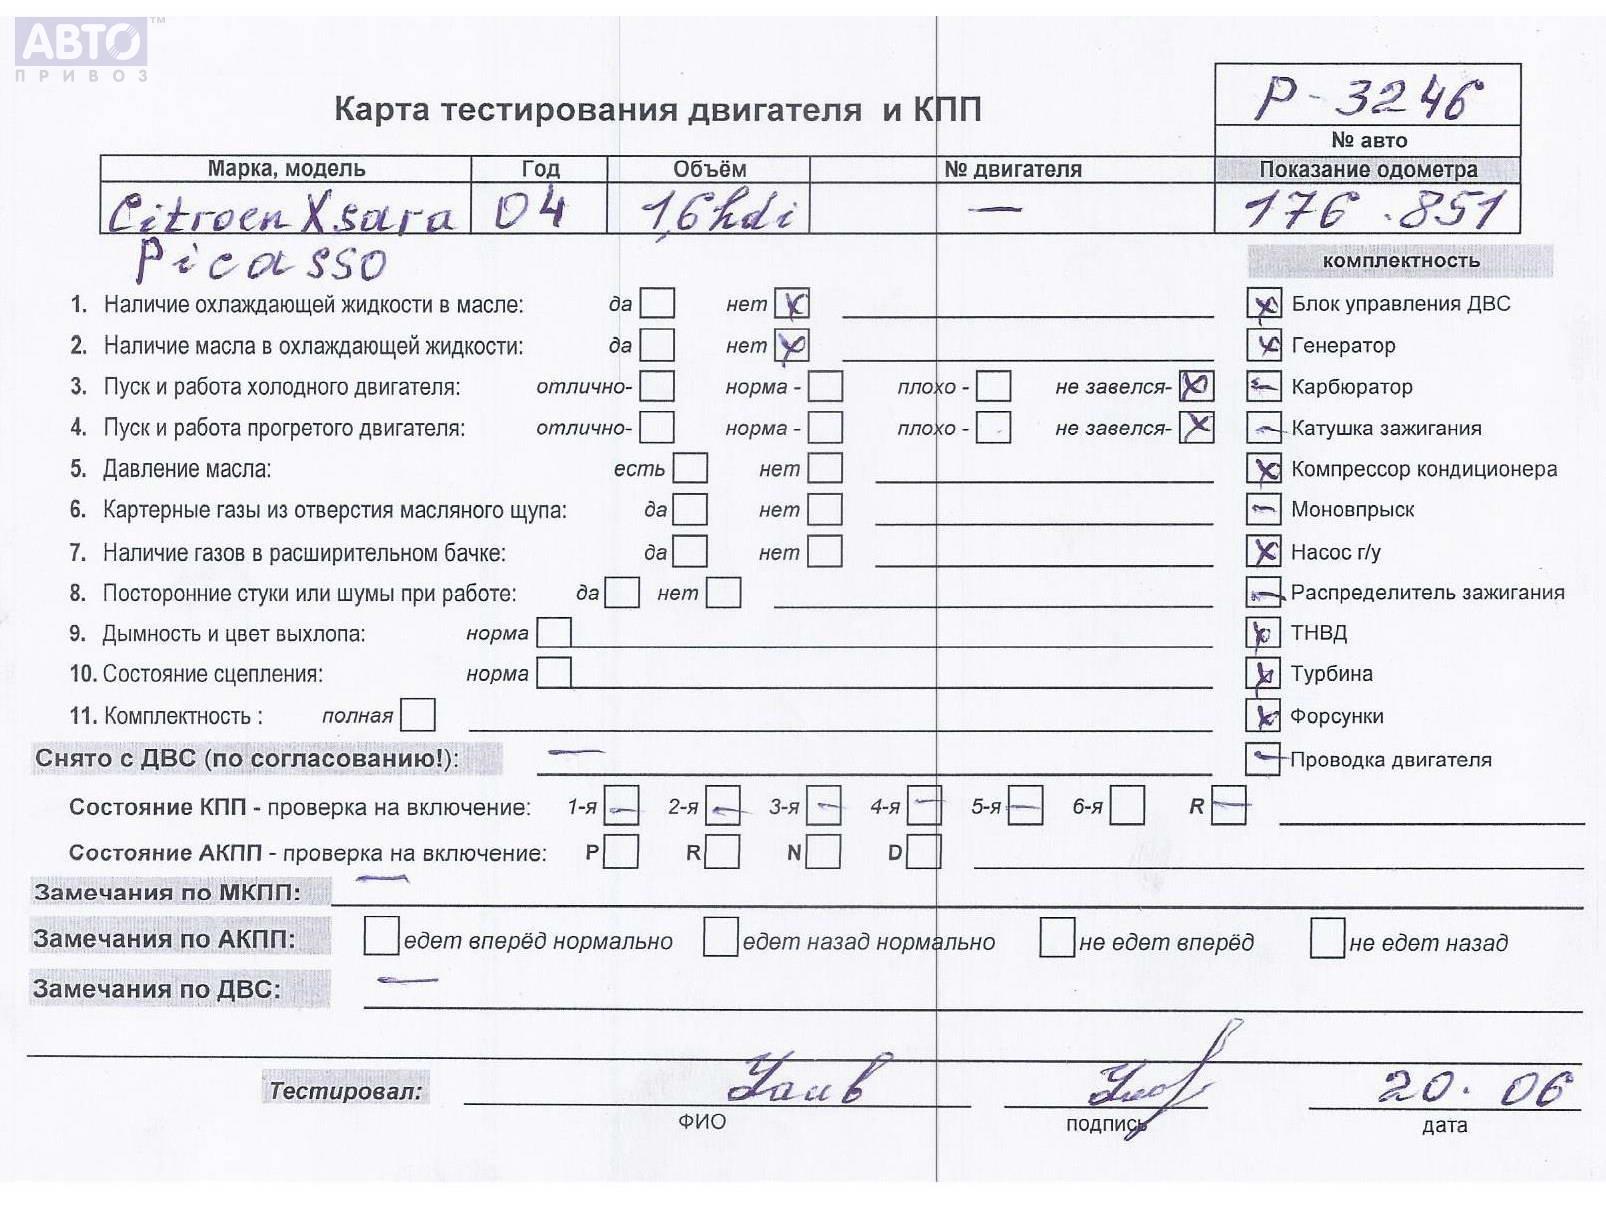 АВТО™
ПРИВОЗ
Р-3246
Карта тестирования двигателя и КПП
№ авто
Марка, модель Год Объём № двигателя Показание одометра
Citroen Xsara 04 1,6hdi — 176.851
Picasso
комплектность
1. Наличие охлаждающей жидкости в масле: да нет Блок управления ДВС
2. Наличие масла в охлаждающей жидкости: да нет Генератор
3. Пуск и работа холодного двигателя: отлично- норма - плохо - не завелся- Карбюратор
4. Пуск и работа прогретого двигателя: отлично- норма - плохо - не завелся- Катушка зажигания
5. Давление масла: есть нет Компрессор кондиционера
6. Картерные газы из отверстия масляного щупа: да нет Моновпрыск
7. Наличие газов в расширительном бачке: да нет Насос г/у
8. Посторонние стуки или шумы при работе: да нет Распределитель зажигания
9. Дымность и цвет выхлопа: норма ТНВД
10. Состояние сцепления: норма Турбина
11. Комплектность : полная Форсунки
Снято с ДВС (по согласованию!): — Проводка двигателя
Состояние КПП - проверка на включение: 1-я 2-я 3-я 4-я 5-я 6-я R
Состояние АКПП - проверка на включение: P R N D
Замечания по МКПП: —
Замечания по АКПП: едет вперёд нормально едет назад нормально не едет вперёд не едет назад
Замечания по ДВС: —
Тестировал: 20.06
ФИО подпись дата